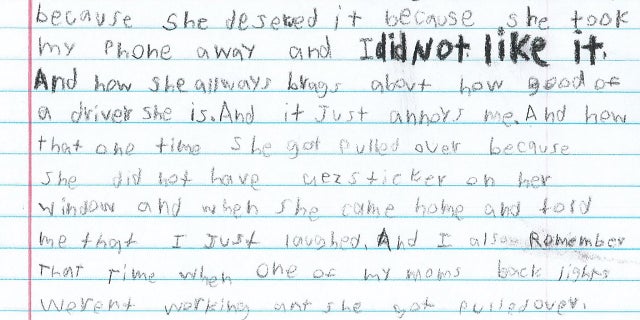 because she deserved it because she took
my Phone away and I did Not like it.
And how she allways brags about how good of
a driver she is. And it Just annoys me. And how
that one time she got Pulled over because
she did not have uezsticker on her
window and when she came home and told
me that I Just laughed. And I also Remember
That Time when One of my moms back lights
Werent working ant she got Pulled over.